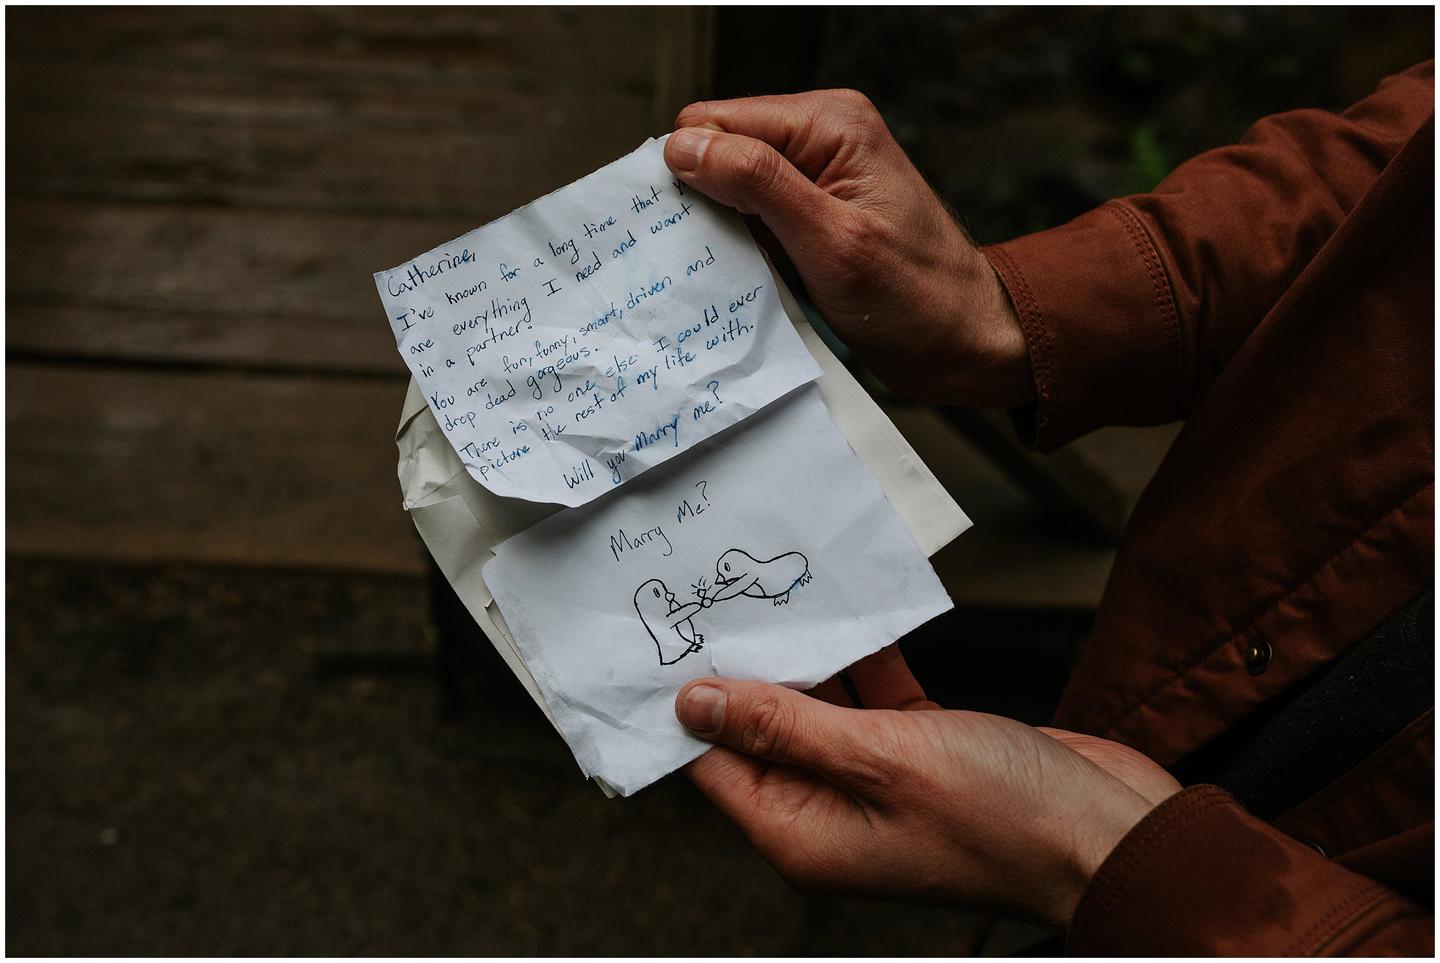 Catherine,
I've known for a long time that
are everything I need and want
in a partner.
You are fun, funny, smart, driven and
drop dead gorgeous.
There is no one else I could ever
picture the rest of my life with.
Will you Marry me?
Marry Me?